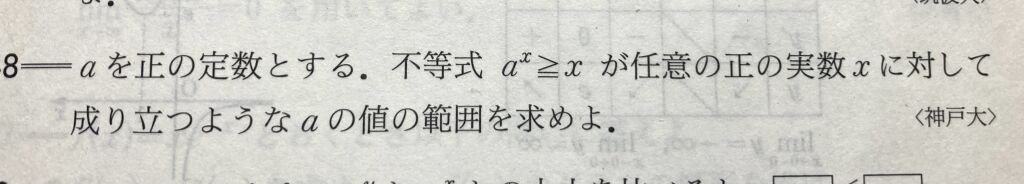 8 aを正の定数とする．不等式 a^x≧x が任意の正の実数xに対して
成り立つようなaの値の範囲を求めよ． 〈神戸大〉